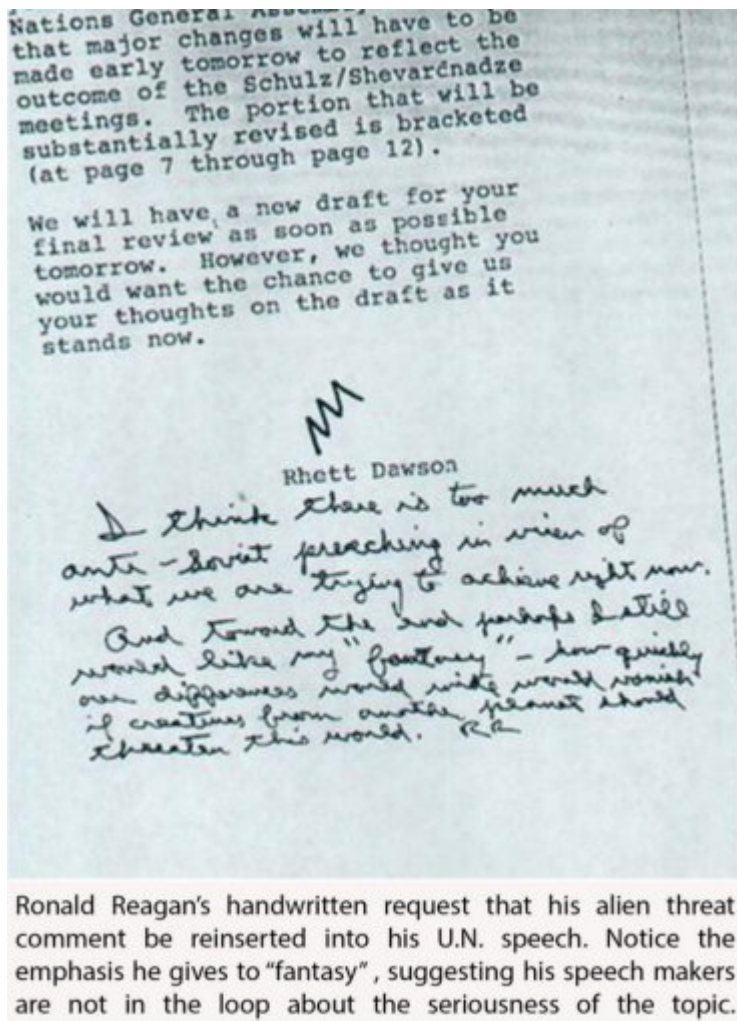 Nations General Assembly,
that major changes will have to be
made early tomorrow to reflect the
outcome of the Schulz/Shevardnadze
meetings. The portion that will be
substantially revised is bracketed
(at page 7 through page 12).
We will have a new draft for your
final review as soon as possible
tomorrow. However, we thought you
would want the chance to give us
your thoughts on the draft as it
stands now.
Rhett Dawson
I think there is too much
anti-Soviet preaching in view of
what we are trying to achieve right now.
And toward the end perhaps I still
would like my "fantasy" – how quickly
our differences world wide would vanish
if creatures from another planet should
threaten this world. RR
Ronald Reagan's handwritten request that his alien threat
comment be reinserted into his U.N. speech. Notice the
emphasis he gives to "fantasy", suggesting his speech makers
are not in the loop about the seriousness of the topic.